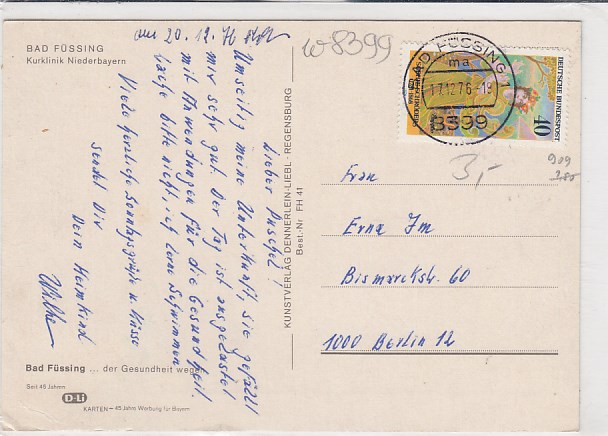 BAD FÜSSING
Kurklinik Niederbayern
Lieber Puschel!
Umseitig meine Unterkunft, sie gefällt
mir sehr gut. Der Tag ist ausgelastet
mit Anwendungen für die Gesundheit.
Lache bitte nicht, ich lerne Schwimmen
Viele herzliche Sonntagsgrüße u. Küsse
sendet Dir
Dein Heimkind
am 20.12.76
w8399
BAD FÜSSING 1
ma
17.12.76-19
8399
DEUTSCHE BUNDESPOST
40
3,-
909
Frau
Erna Jm
Bismarckstr. 60
1000 Berlin 12
KUNSTVERLAG DENNERLEIN-LIEBL · REGENSBURG
Best.-Nr FH 41
Bad Füssing ... der Gesundheit wegen
Seit 45 Jahren
D-Li
KARTEN – 45 Jahre Werbung für Bayern